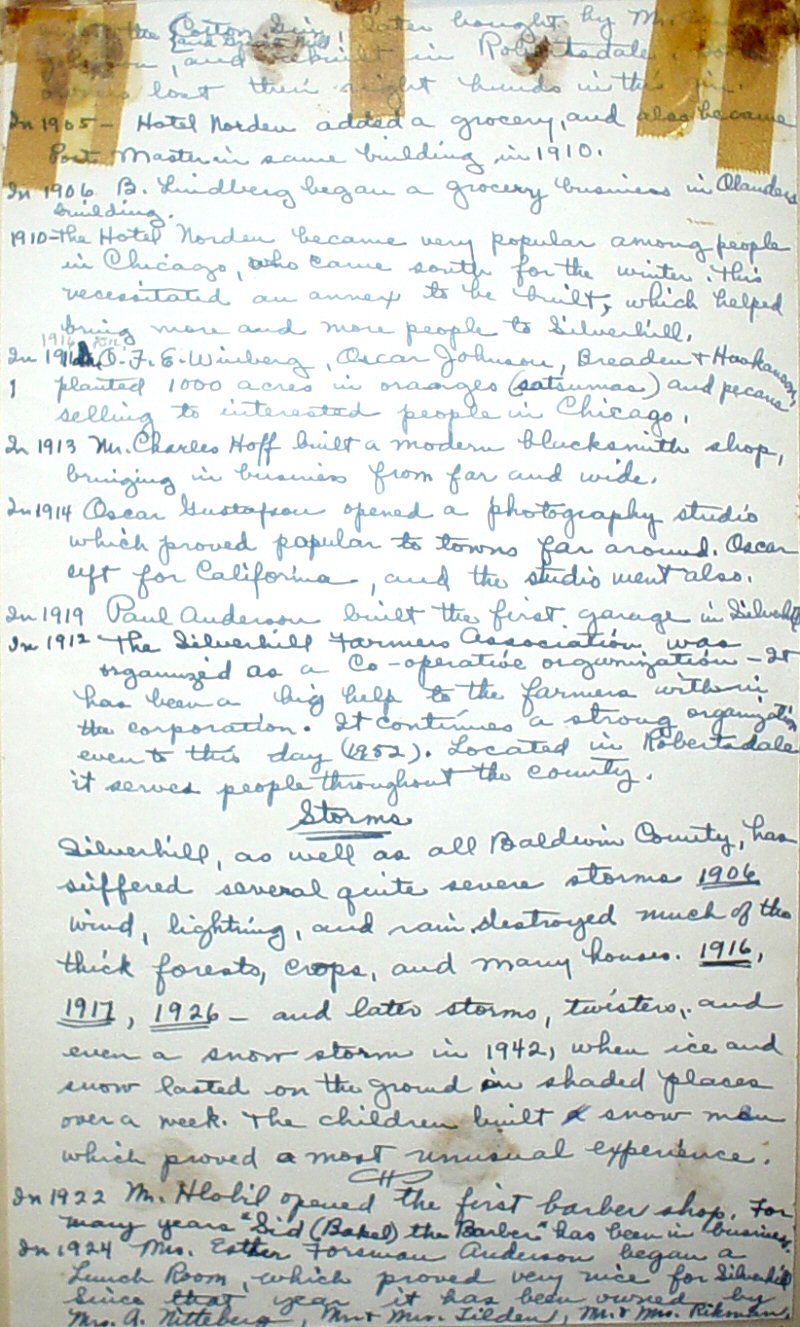 the Cotton Gin, later bought by Mr.
and Grist Mill
and rebuilt in Robertsdale.
owners lost their right hands in this gin.
In 1905 - Hotel Norden added a grocery, and also became
Post Master in same building in 1910.
In 1906 B. Lindberg began a grocery business in Olanders
building.
1910 - The Hotel Norden became very popular among people
in Chicago, who came south for the winter. This
necessitated an annex to be built, which helped
bring more and more people to Silverhill.
1916
In O. F. E. Winberg, Oscar Johnson, Breaden & Haakanson,
planted 1000 acres in oranges (satsumas) and pecans
selling to interested people in Chicago.
In 1913 Mr. Charles Hoff built a modern blacksmith shop,
bringing in business from far and wide.
In 1914 Oscar Gustafson opened a photography studio
which proved popular to towns far around. Oscar
left for California, and the studio went also.
In 1919 Paul Anderson built the first garage in Silverhill
In 1912 The Silverhill Farmers Association was
organized as a Co-operative organization - It
has been a big help to the farmers with in
the corporation. It continues a strong organization
even to this day (1952). Located in Robertsdale
it serves people throughout the county.
Storms
Silverhill, as well as all Baldwin County, has
suffered several quite severe storms 1906
wind, lightning, and rain destroyed much of the
thick forests, crops, and many houses. 1916,
1917, 1926 - and later storms, twisters, and
even a snow storm in 1942, when ice and
snow lasted on the ground in shaded places
over a week. The children built snow men
which proved a most unusual experience.
In 1922 Mr. Hlobil opened the first barber shop. For
many years "Sid (Bakel) the Barber" has been in business.
In 1924 Mrs. Esther Forsman Anderson began a
Lunch Room, which proved very nice for Silverhill
Since that year it has been owned by
Mrs. A. Nitteberg, Mr & Mrs. Tilden, Mr. & Mrs. Rikman,